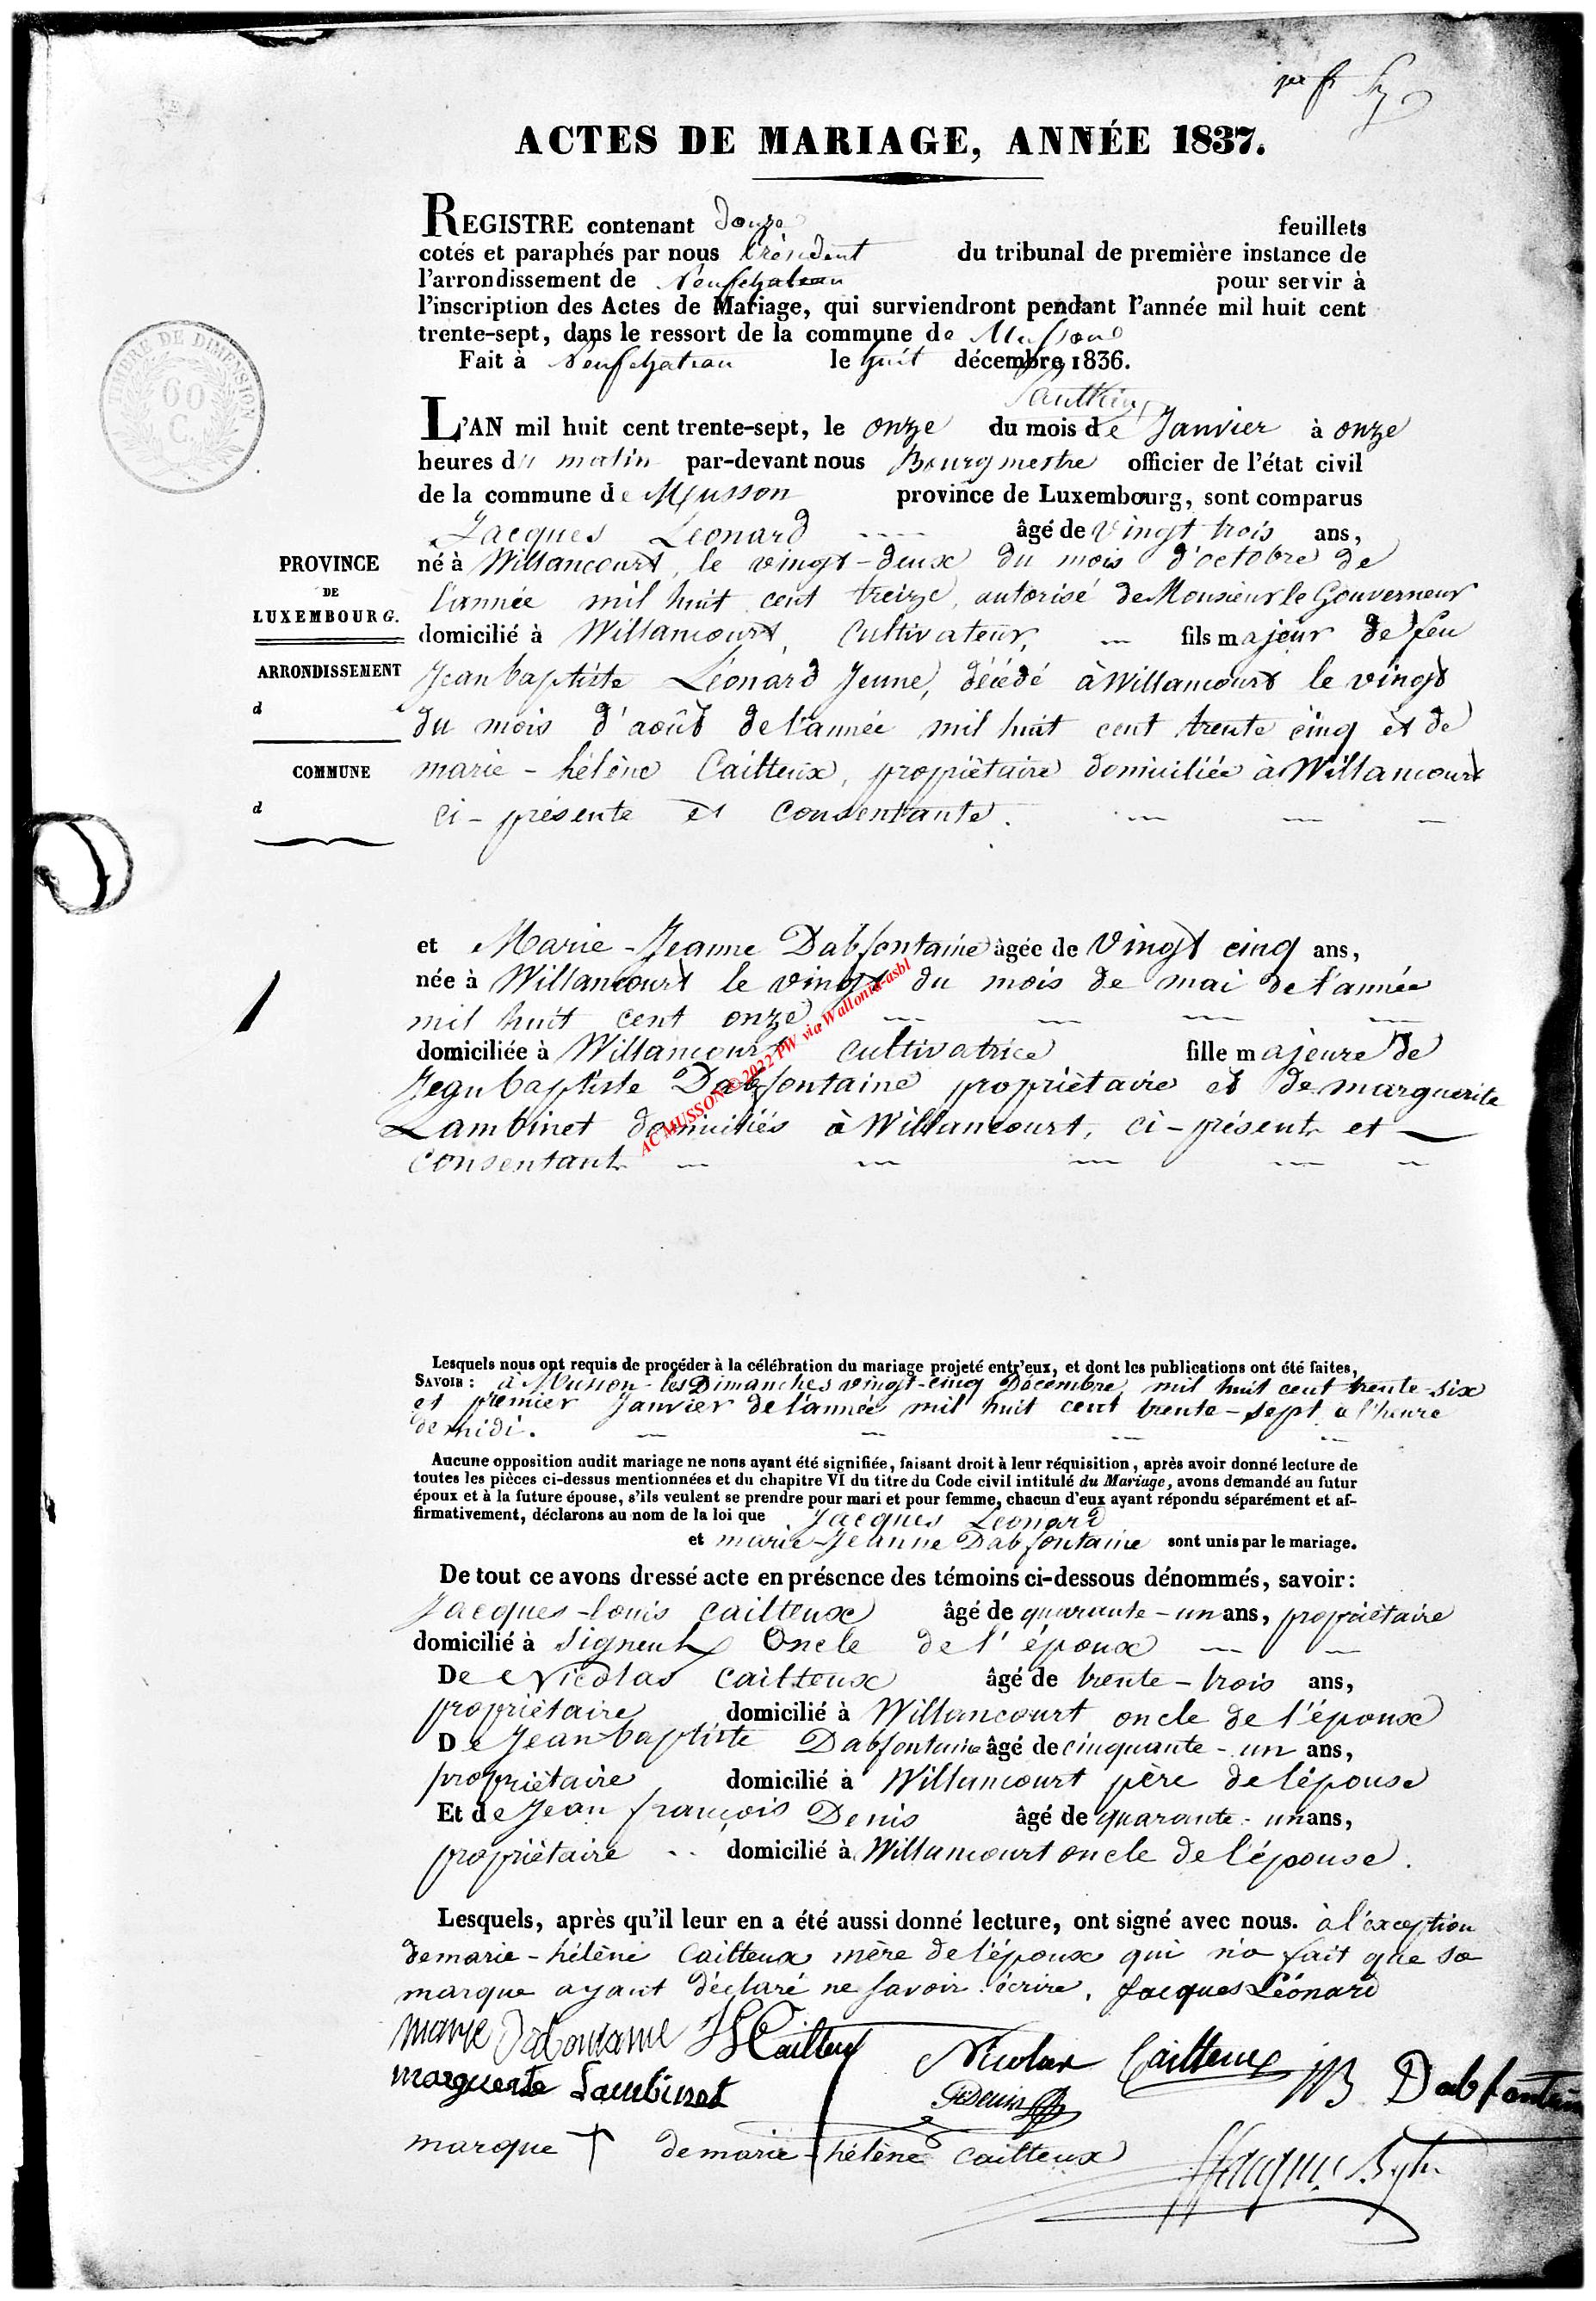 ACTES DE MARIAGE, ANNÉE 1837.
REGISTRE contenant douze feuillets
cotés et paraphés par nous Président du tribunal de première instance de
l'arrondissement de Neufchateau pour servir à
l'inscription des Actes de Mariage, qui surviendront pendant l'année mil huit cent
trente-sept, dans le ressort de la commune de Musson
Fait à Neufchateau le huit décembre 1836.
TIMBRE DE DIMENSION
60
C.
L'AN mil huit cent trente-sept, le onze du mois de Janvier à onze
heures du matin par-devant nous Bourgmestre officier de l'état civil
de la commune de Musson province de Luxembourg, sont comparus
Jacques Léonard âgé de vingt trois ans,
PROVINCE
DE
LUXEMBOURG.
ARRONDISSEMENT
d
COMMUNE
d
né à Willancourt, le vingt-deux du mois d'octobre de
l'année mil huit cent treize, autorisé de Monsieur le Gouverneur
domicilié à Willancourt, Cultivateur, fils majeur de feu
Jean baptiste Léonard Jeune, décédé à Willancourt le vingt
du mois d'août de l'année mil huit cent trente cinq et de
marie-hélène Cailteux, propriétaire domiciliée à Willancourt
ci-présente et consentante.
1
et Marie-Jeanne Dabfontaine âgée de Vingt cinq ans,
née à Willancourt le vingt du mois de mai de l'année
mil huit cent onze
domiciliée à Willancourt cultivatrice fille majeure de
Jean baptiste Dabfontaine propriétaire et de marguerite
Lambinet domiciliés à Willancourt, ci-présents et
consentants
AC MUSSON © 2022 PW via Wallonia-asbl
Lesquels nous ont requis de procéder à la célébration du mariage projeté entr'eux, et dont les publications ont été faites,
SAVOIR : à Musson les Dimanches vingt-cinq Décembre mil huit cent trente-six
et premier Janvier de l'année mil huit cent trente-sept à l'heure
de midi.
Aucune opposition audit mariage ne nous ayant été signifiée, faisant droit à leur réquisition, après avoir donné lecture de
toutes les pièces ci-dessus mentionnées et du chapitre VI du titre du Code civil intitulé du Mariage, avons demandé au futur
époux et à la future épouse, s'ils veulent se prendre pour mari et pour femme, chacun d'eux ayant répondu séparément et af-
firmativement, déclarons au nom de la loi que Jacques Léonard
et marie-Jeanne Dabfontaine sont unis par le mariage.
De tout ce avons dressé acte en présence des témoins ci-dessous dénommés, savoir:
Jacques-louis Cailteux âgé de quarante-un ans, propriétaire
domicilié à Signeulx Oncle de l'époux
De Nicolas Cailteux âgé de trente-trois ans,
propriétaire domicilié à Willancourt oncle de l'époux
De Jean baptiste Dabfontaine âgé de cinquante-un ans,
propriétaire domicilié à Willancourt père de l'épouse
Et de Jean françois Denis âgé de quarante-un ans,
propriétaire domicilié à Willancourt oncle de l'épouse.
Lesquels, après qu'il leur en a été aussi donné lecture, ont signé avec nous. à l'exception
de marie-hélène Cailteux mère de l'époux qui n'a fait que sa
marque ayant déclaré ne savoir écrire. Jacques Léonard
marie Dabontaine JL Cailteux Nicolas Cailteux JB Dabfontaine
marguerite Lambinet Denis
marque † de marie-hélène Cailteux